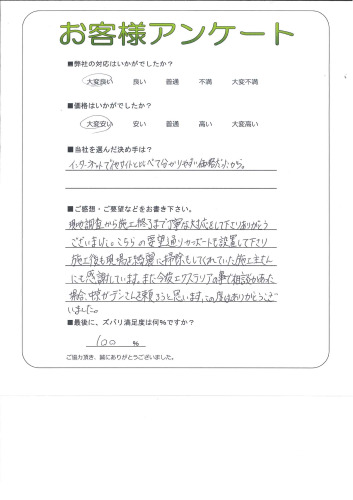 お客様アンケート
■弊社の対応はいかがでしたか?
大変良い 良い 普通 不満 大変不満
■価格はいかがでしたか?
大変安い 安い 普通 高い 大変高い
■当社を選んだ決め手は?
インターネットで他サイトと比べて分かりやすい価格だったから。
■ご感想・ご要望などをお書き下さい。
現地調査から施工終了まで丁寧な対応をして下さりありがとう
ございました。こちらの要望通りカーポートを設置して下さり
施工後も現場を綺麗に掃除もしてくれていた施工主さん
にも感謝しています。また今後エクステリアの事で相談があった
場合、ガーデンさんを頼ろうと思います。この度はありがとうござ
いました。
■最後に、ズバリ満足度は何%ですか?
100 %
ご協力頂き、誠にありがとうございました。